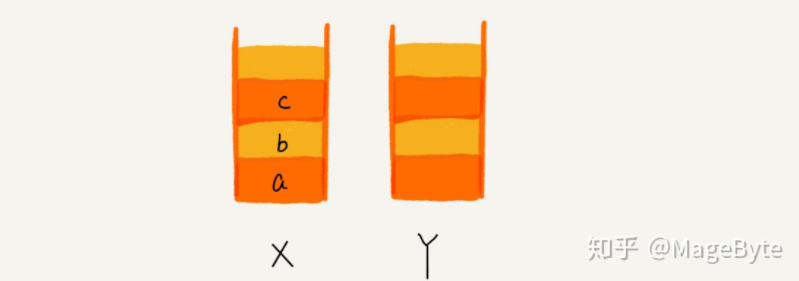 c
b
a
X
Y
知乎 @MageByte